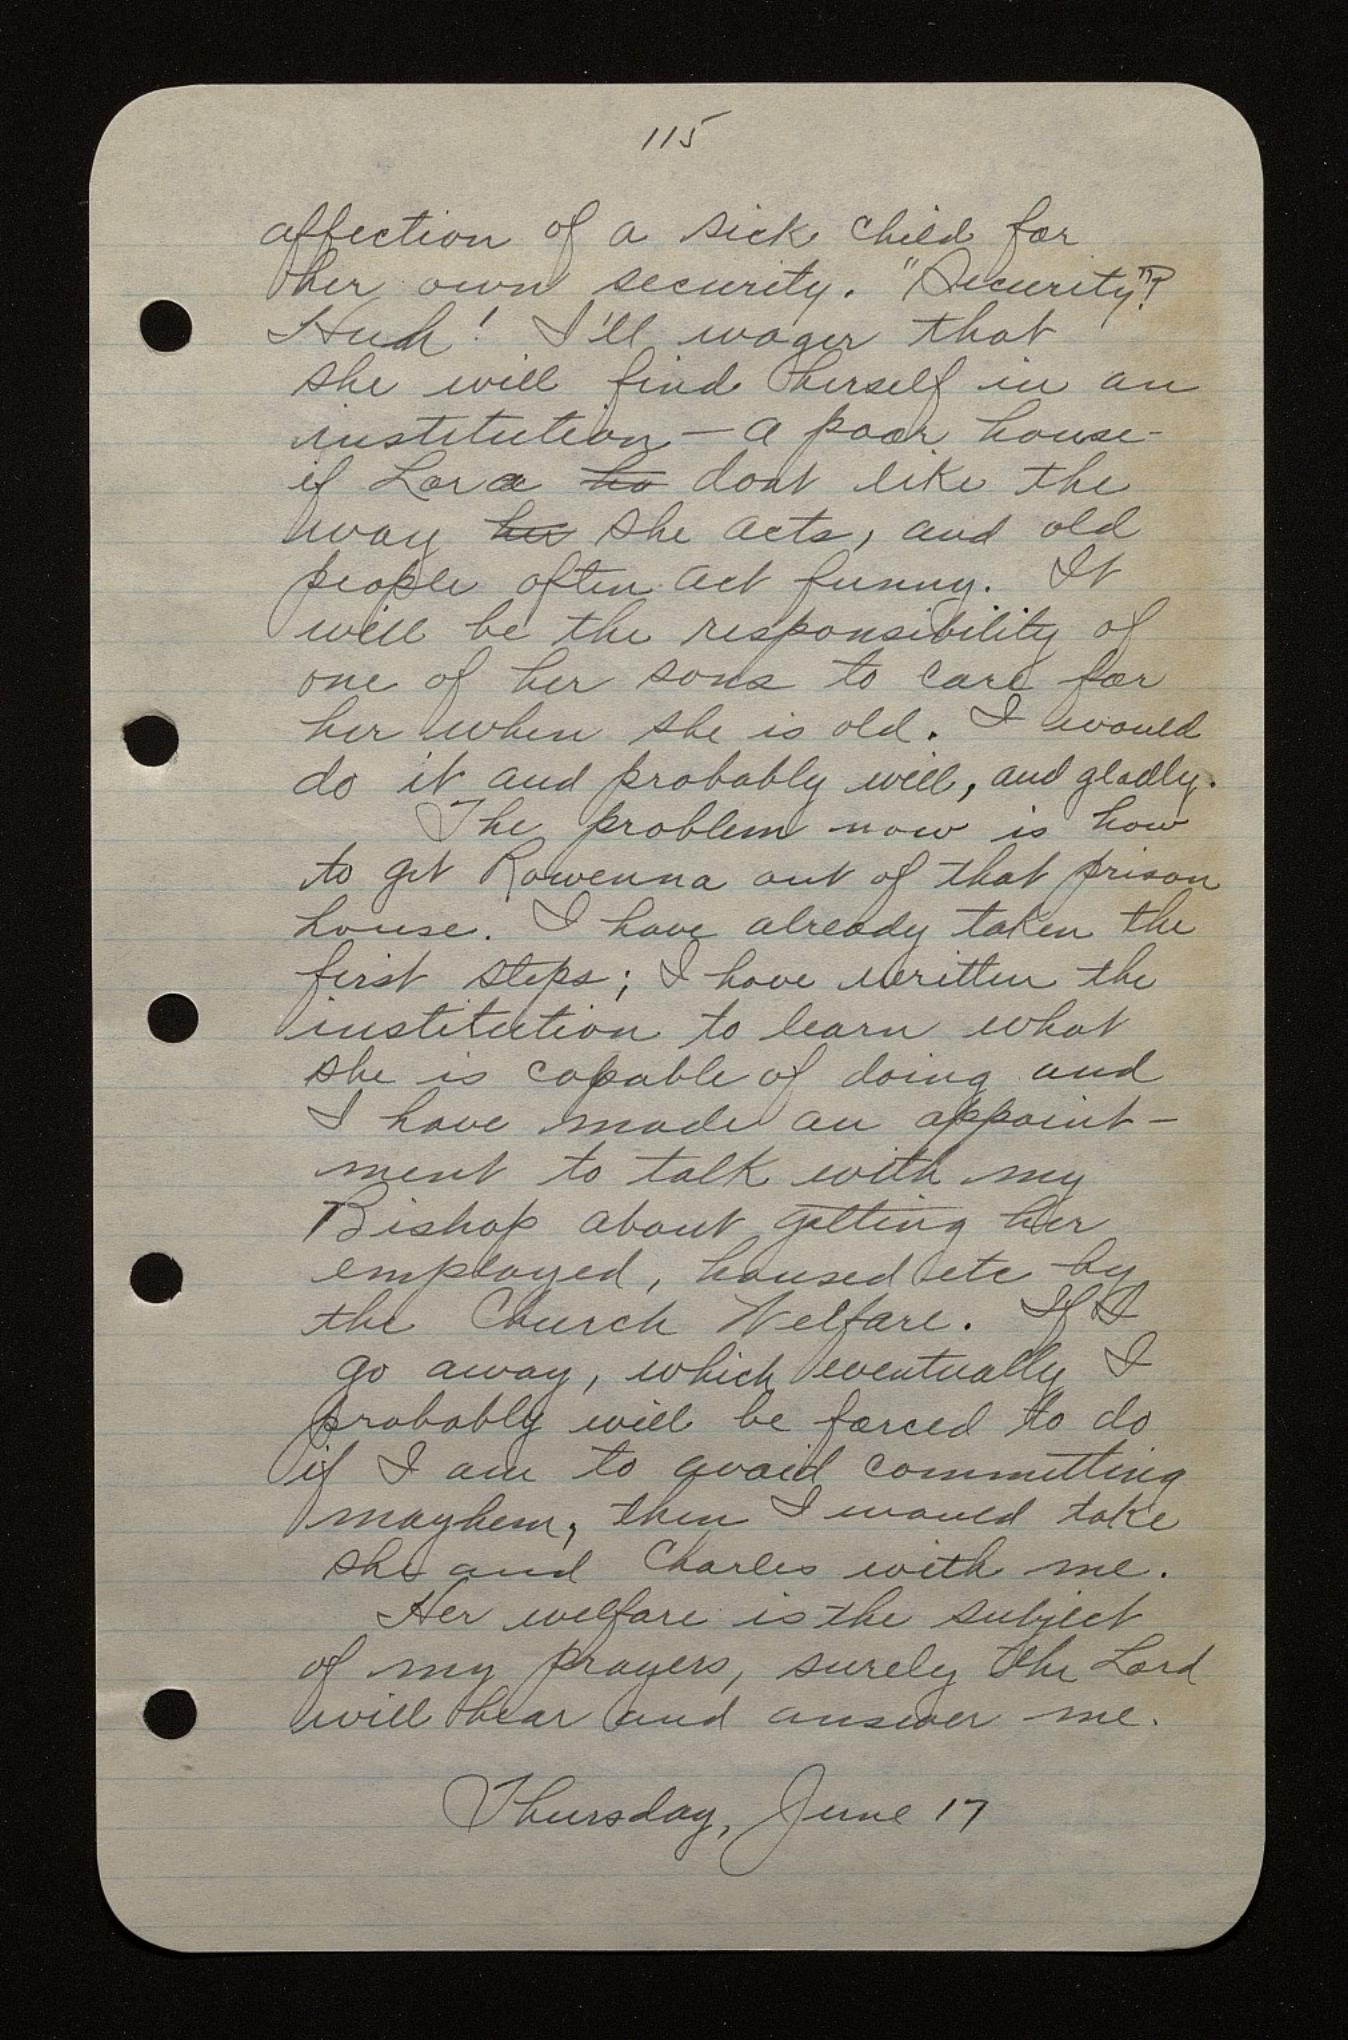 115
affection of a sick child for
her own security. "Security"?
Huh! I'll wager that
she will find herself in an
institution — a poor house -
if Lora ho dont like the
way her she acts, and old
people often act funny. It
will be the responsibility of
one of her sons to care for
her when she is old. I would
do it and probably will, and gladly.
The problem now is how
to get Rowenna out of that prison
house. I have already taken the
first steps; I have written the
institution to learn what
she is capable of doing and
I have made an appoint-
ment to talk with my
Bishop about getting her
employed, housed etc by
the Church Welfare. If I
go away, which eventually I
probably will be forced to do
if I am to avoid committing
mayhem, then I would take
she and Charles with me.
Her welfare is the subject
of my prayers, surely the Lord
will hear and answer me.
Thursday, June 17